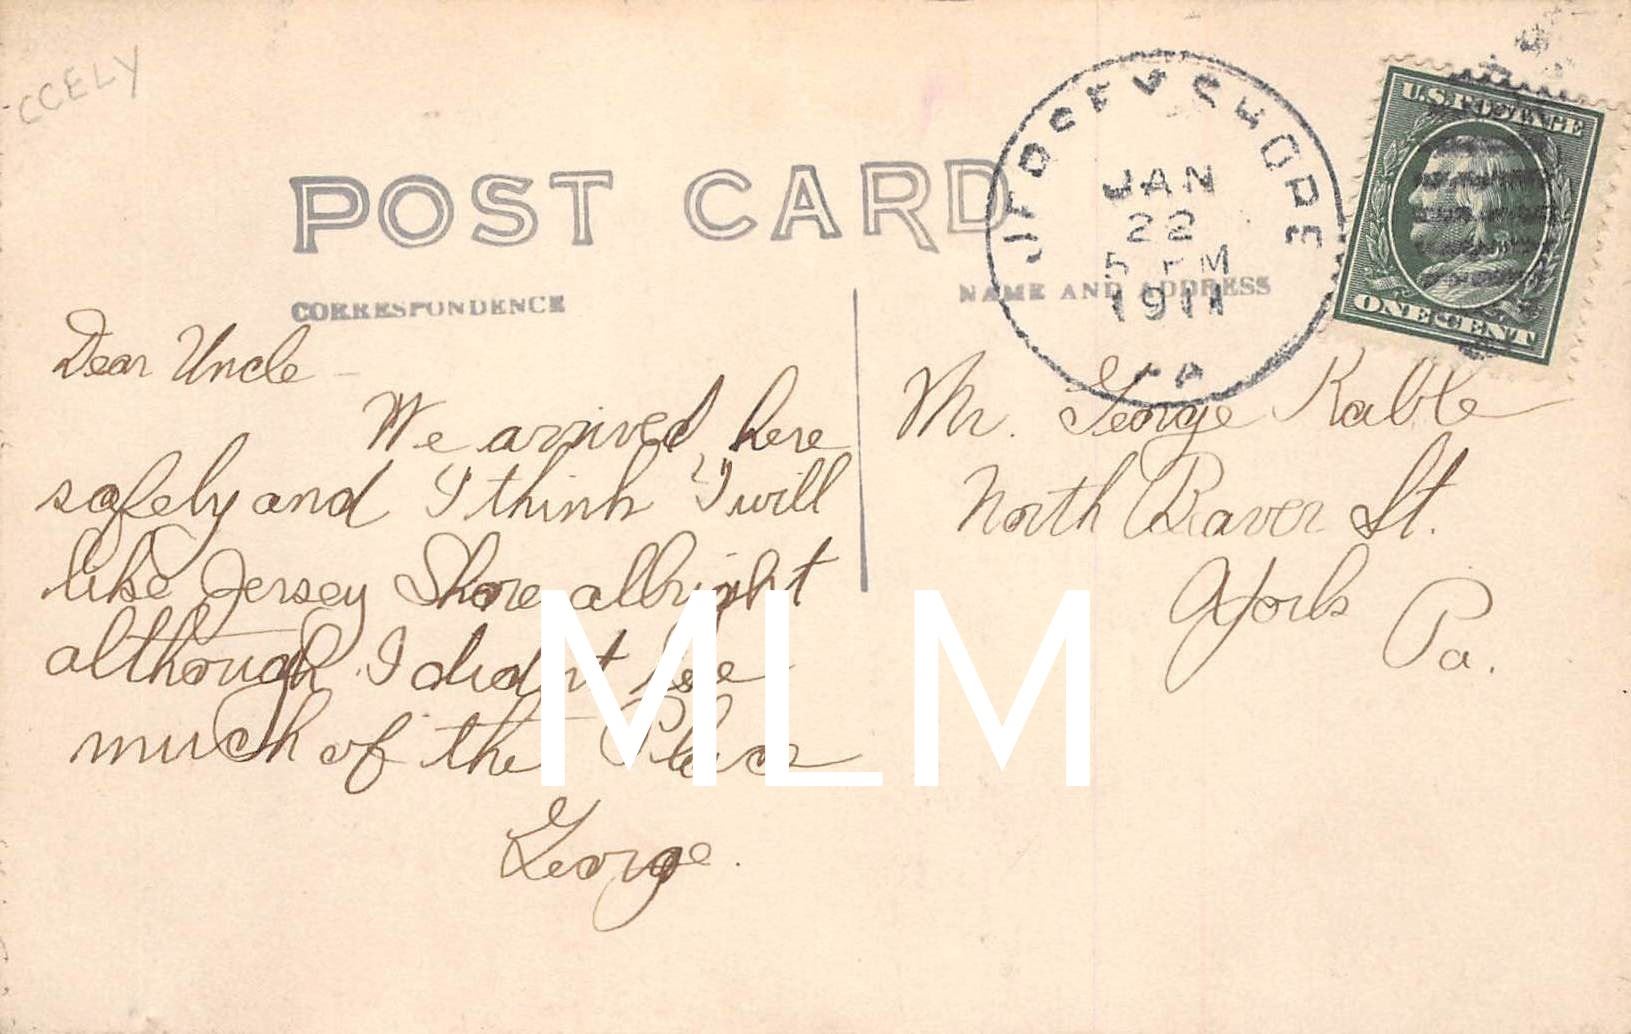 CCELY
POST CARD
CORRESPONDENCE
NAME AND ADDRESS
JERSEY SHORE
JAN
22
5 PM
1911
PA
U.S. POSTAGE
ONE CENT
Dear Uncle -
We arrived here
safely and I think I will
like Jersey Shore allright
although I didn't see
much of the Place
George.
Mr. George Kable
North Beaver St.
York
Pa.
MLM